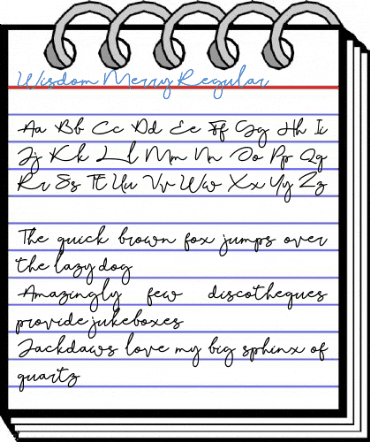 Wisdom Merry Regular
Aa Bb Cc Dd Ee Ff Gg Hh Ii
Jj Kk Ll Mm Nn Oo Pp Qq
Rr Ss Tt Uu Vv Ww Xx Yy Zz
The quick brown fox jumps over
the lazy dog
Amazingly few discotheques
provide jukeboxes
Jackdaws love my big sphinx of
quartz